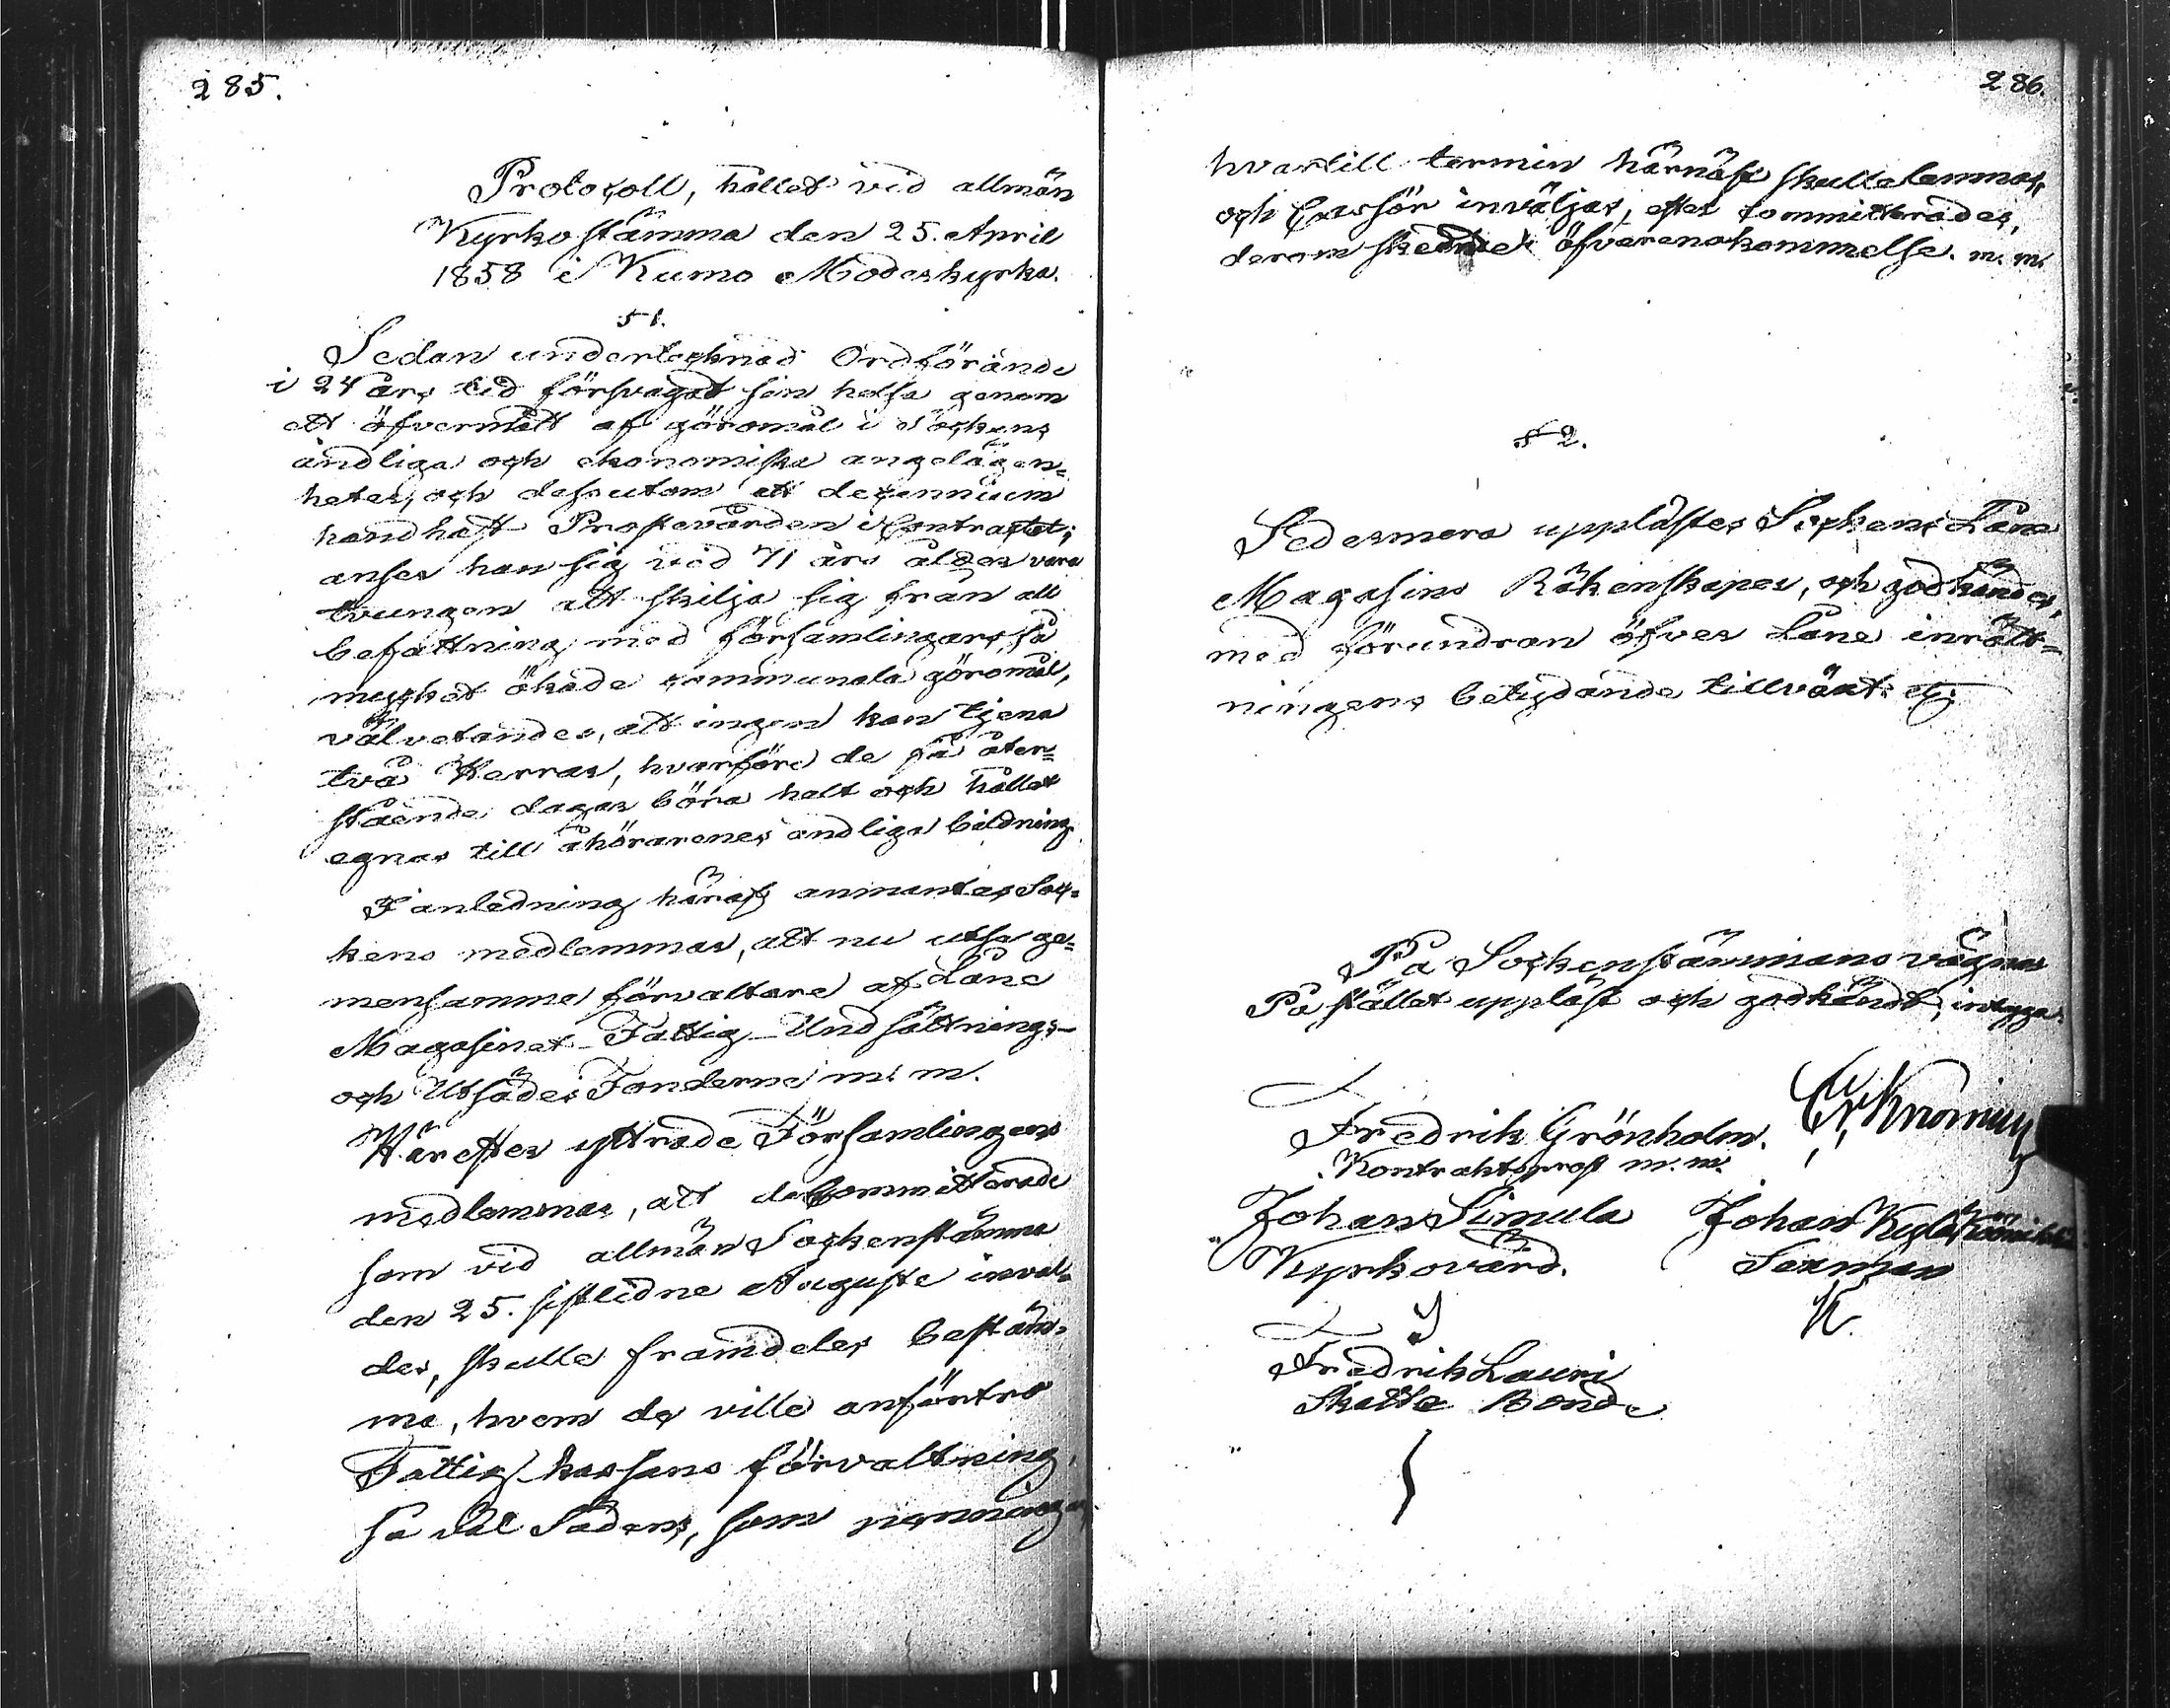 285.
Protocoll, hållet vid allmän
Kyrkostämma den 25. April
1858 i Kumo Moderkyrka.
§ 1.
Sedan undertecknad Ordförande
i 24 års tid försvagat sin helsa genom
ett öfvermått af göromål i Sockens
andliga och ekonomiska angelägen=
heter, och dessutom ett decennium
handhaft Prostevården i Contractet;
anser han sig vid 71 års ålder vara
tvungen att skilja sig från all
befattning med församlingars så
mycket ökade communala göromål,
väl vetandes, att ingen kan tjena
två Herrar, hvarföre de få åter=
stående dagar böra helt och hållet
egnas till åhörarenes andliga bildning.
I anledning häraf anmantes Soc=
kens medlemmar, att nu utse ge=
mensamme förvaltare af Låne
Magasinet Fattig- Undsättnings-
och Utsädes Fonderne m. m.
Härefter yttrade Församlingens
medlemmar, att de Committerade
som vid allmän Sockenstämma
den 25. sistledne Auguste inval=
des, skulle framdeles bestäm=
ma, hvem de ville anförtro
Fattig kassans förvaltning,
så väl Sädens, som penningar
286.
hvartill termin härnäst skulle lemnas,
och Cassör inväljas, efter committerades,
derom skeende öfverenskommelse. m. m.
§ 2.
Sedermera upplästes Sockens Låne
Magasins Räkenskaper, och godkändes,
med förundran öfver Låne inrätt=
ningens betydande tillväxt etc.
På Sockenstämmans vägnar
På stället uppläst och godkändt, intyga.
Fredrik Grönholm.
Kontraktsprost m. m.
Johan Simula Johan Kylä
Kyrkovärd. Sexman
K.
Fredrik Lauri
Skatte Bonde